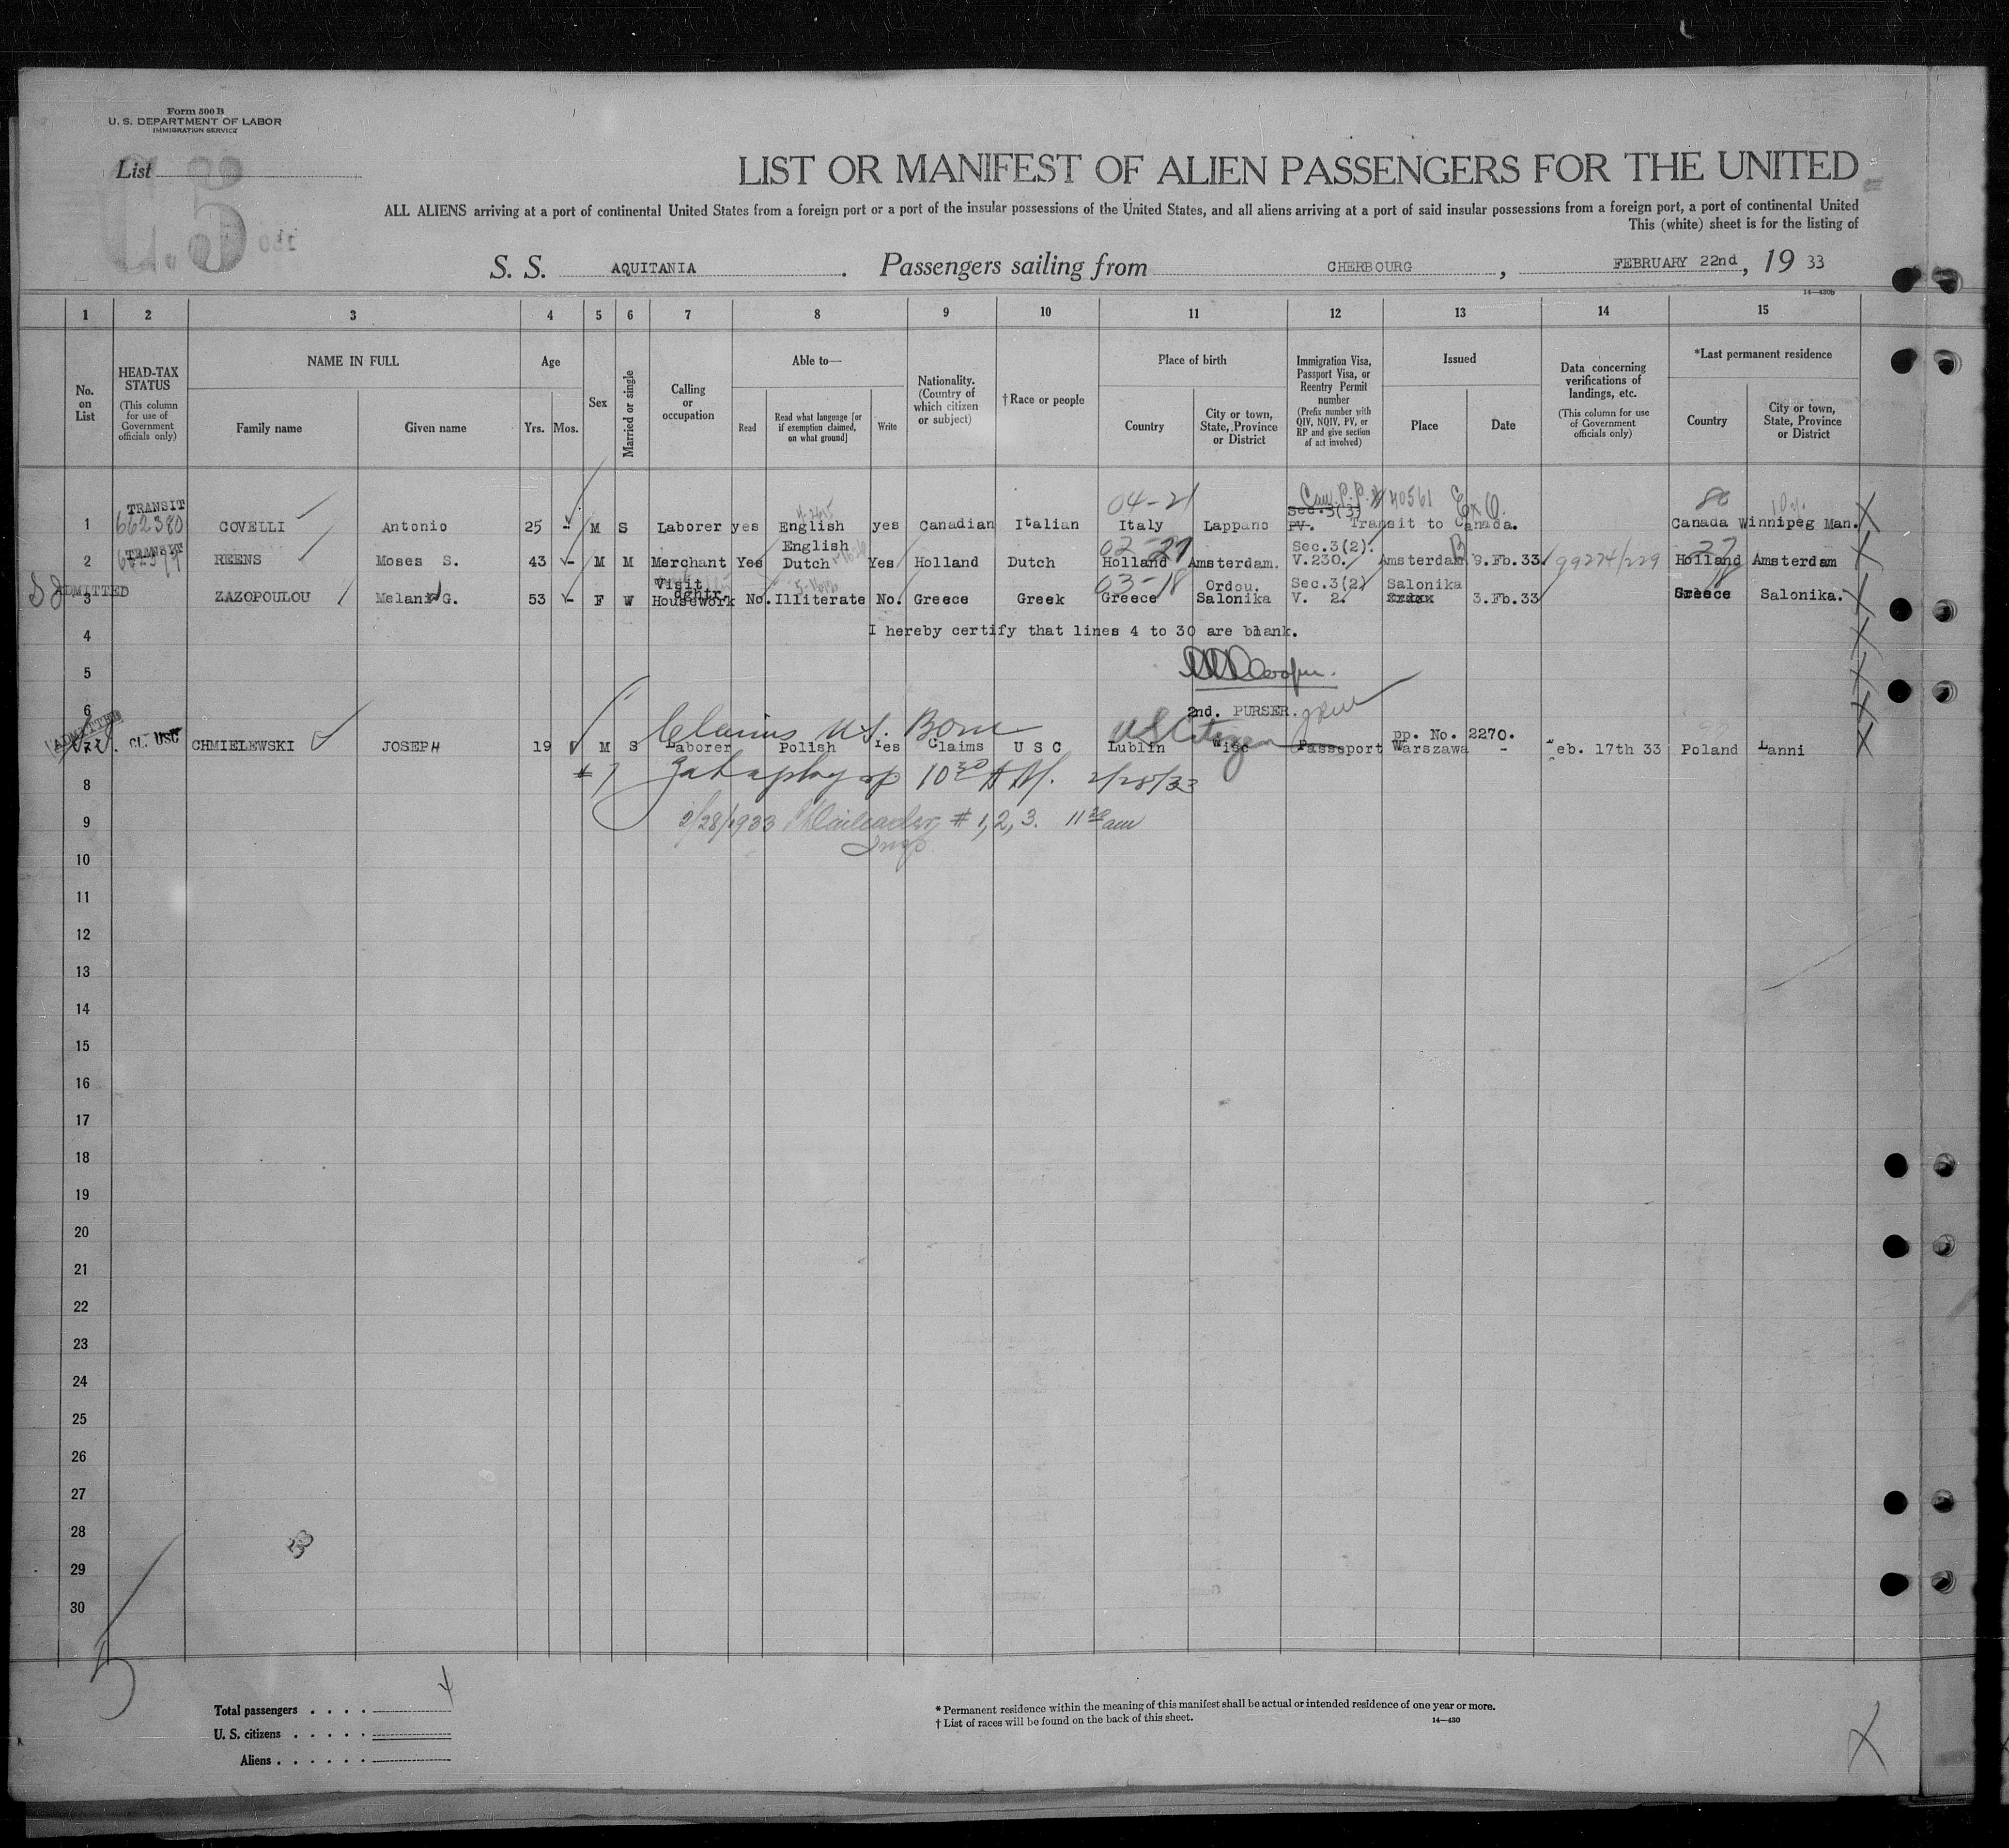 Form 500 B
U. S. DEPARTMENT OF LABOR
IMMIGRATION SERVICE
List
LIST OR MANIFEST OF ALIEN PASSENGERS FOR THE UNITED
ALL ALIENS arriving at a port of continental United States from a foreign port or a port of the insular possessions of the United States, and all aliens arriving at a port of said insular possessions from a foreign port, a port of continental United
This (white) sheet is for the listing of
S. S. AQUITANIA. Passengers sailing from CHERBOURG, FEBRUARY 22nd, 19 33
14—430b
1 2 3 4 5 6 7 8 9 10 11 12 13 14 15
No. on List
HEAD-TAX STATUS
(This column for use of Government officials only)
NAME IN FULL
Family name
Given name
Age
Yrs. Mos.
Sex
Married or single
Calling or occupation
Able to—
Read
Read what language [or if exemption claimed, on what ground]
Write
Nationality. (Country of which citizen or subject)
†Race or people
Place of birth
Country
City or town, State, Province or District
Immigration Visa, Passport Visa, or Reentry Permit number
(Prefix number with QIV, NQIV, PV, or RP and give section of act involved)
Issued
Place
Date
Data concerning verifications of landings, etc.
(This column for use of Government officials only)
*Last permanent residence
Country
City or town, State, Province or District
TRANSIT 04-21 Can. P.P. 40561 80
Sec.3(3)
1 662380 COVELLI Antonio 25 - M S Laborer yes English yes Canadian Italian Italy Lappano PV. Transit to Canada. Canada Winnipeg Man.
TRANSIT English 02-27 Sec.3(2). 27
2 REENS Moses S. 43 - M M Merchant Yes Dutch Yes Holland Dutch Holland Amsterdam. V.230. Amsterdam 9.Fb.33 99274/229 Holland Amsterdam
ADMITTED Visit dghtr. 03-18 Ordou. Sec.3(2) Salonika 18
3 ZAZOPOULOU Melani G. 53 - F W Housework No. Illiterate No. Greece Greek Greece Salonika V. 2. 3.Fb.33 Greece Salonika.
4 I hereby certify that lines 4 to 30 are blank.
5
6 2nd. PURSER.
ADMITTED Claims U.S. Born US Citizen pp. No. 2270.
CL. USC CHMIELEWSKI JOSEPH 19 M S Laborer Polish Yes Claims U S C Lublin Wisc Passport Warszawa - Feb. 17th 33 Poland Lanni
8 #7 10 30 AM. 2/28/33
9 2/28/1933 # 1, 2, 3. 11 20 am
Insp
10
11
12
13
14
15
16
17
18
19
20
21
22
23
24
25
26
27
28
29
30
Total passengers . . . . 4
U. S. citizens . . . . .
Aliens . . . . . .
* Permanent residence within the meaning of this manifest shall be actual or intended residence of one year or more.
† List of races will be found on the back of this sheet.
14—430